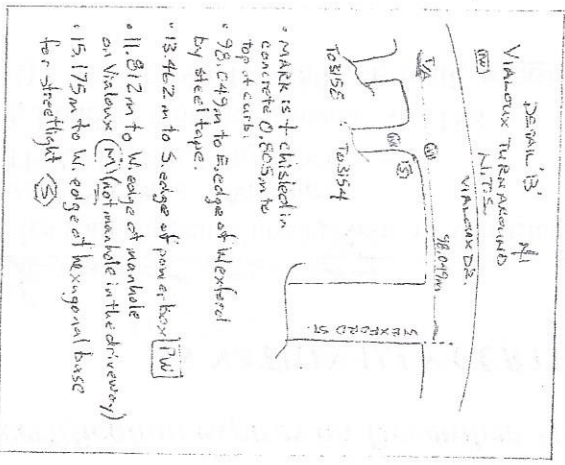 DETAIL 'B'
VIALOUX TURNAROUND
N.T.S.
N
VIALOUX DR.
PW
98.049m
T/A
S
To 3158
To 3154
WEXFORD ST.
• MARK is + chisled in
concrete 0.805m to
top of curb.
• 98.049m to E. edge of Wexford
by steel tape.
• 13.462m to S. edge of power box PW
• 11.812m to W. edge of manhole
on Vialoux (M) (not manhole in the driveway)
• 15.175m to W. edge of hexagonal base
for streetlight S